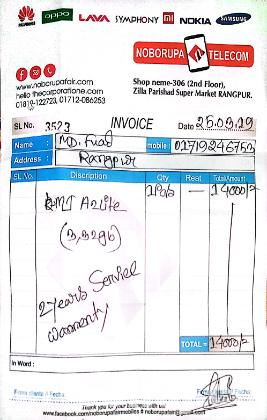 HUAWEI oppo LAVA SYMPHONY mi NOKIA SAMSUNG
NOBORUPA TELECOM
www.noborupafair.com
www.thecorporatione.com
01819-122723, 01712-086253
Shop neme-306 (2nd Floor),
Zilla Parishad Super Market RANGPUR.
SL No. 3523 INVOICE Date 25.09.19
Name : MD. Fuad mobile 01719246753
Address : Rangpur
SL No. Discription Qty Reat Total Amount
MI A2 Lite 1 Pcs — 14000/=
(3,32GB)
2 years Service
Warranty
TOTAL = 14000/=
In Word :
Thank you for your business with us!
www.facebook.com/noborupafairmobiles # noborupafair@gmail.com